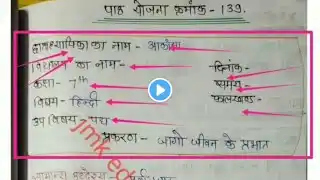 पाठ योजना क्रमांक - 139.
छात्राध्यापिका का नाम - आकांक्षा
विद्यालय का नाम - दिनांक -
कक्षा - 7th समय -
विषय - हिन्दी कालखण्ड -
उप विषय - पद्य
प्रकरण - जागो जीवन के प्रभात
सामान्य उद्देश्य